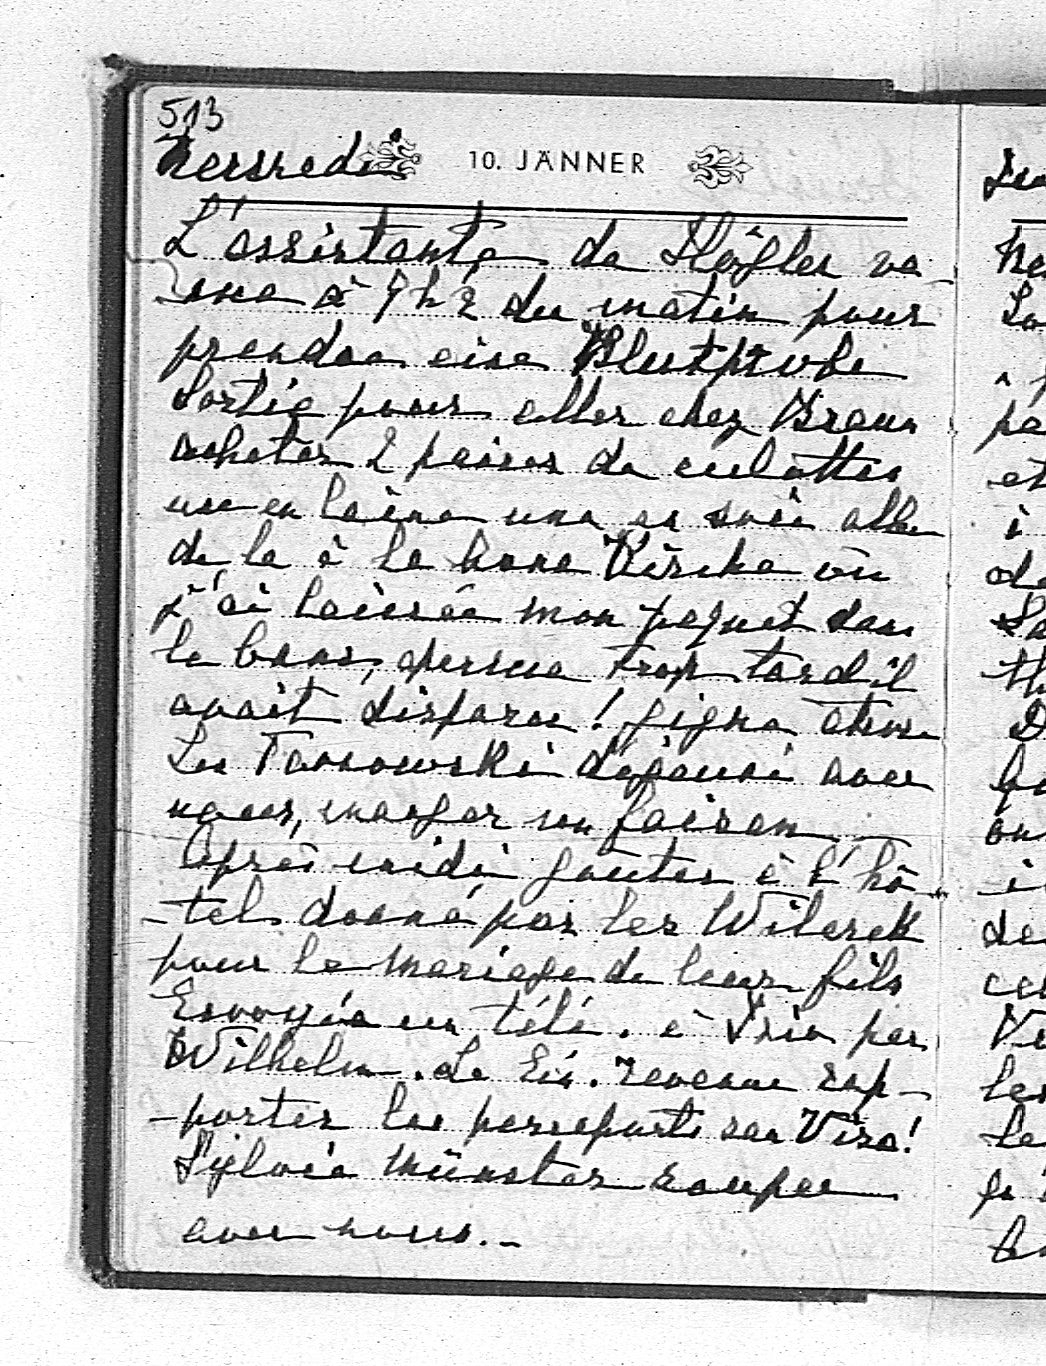 513
10. JÄNNER
L'assistante de Högler ve-
-nue à 9 h 2 du matin pour
prendre une Blutprobe
Sortie pour aller chez Braun
acheter 2 paires de culottes
une en laine une en soie aller
de la à la
j'ai laissée mon paquet dans
le banc, aperçue trop tard il
avait disparu!
Les Tarnowski déjeuné avec
nous, manger un faisan
Après midi gouter à l'hô-
-tel donné par les Wilczek
pour le mariage de leur fils
Envoyée un télé. à par
Wilhelm. Le revenue rap-
-porter les passeports san Visa!
Sylvia Münster soupée
avec nous.-